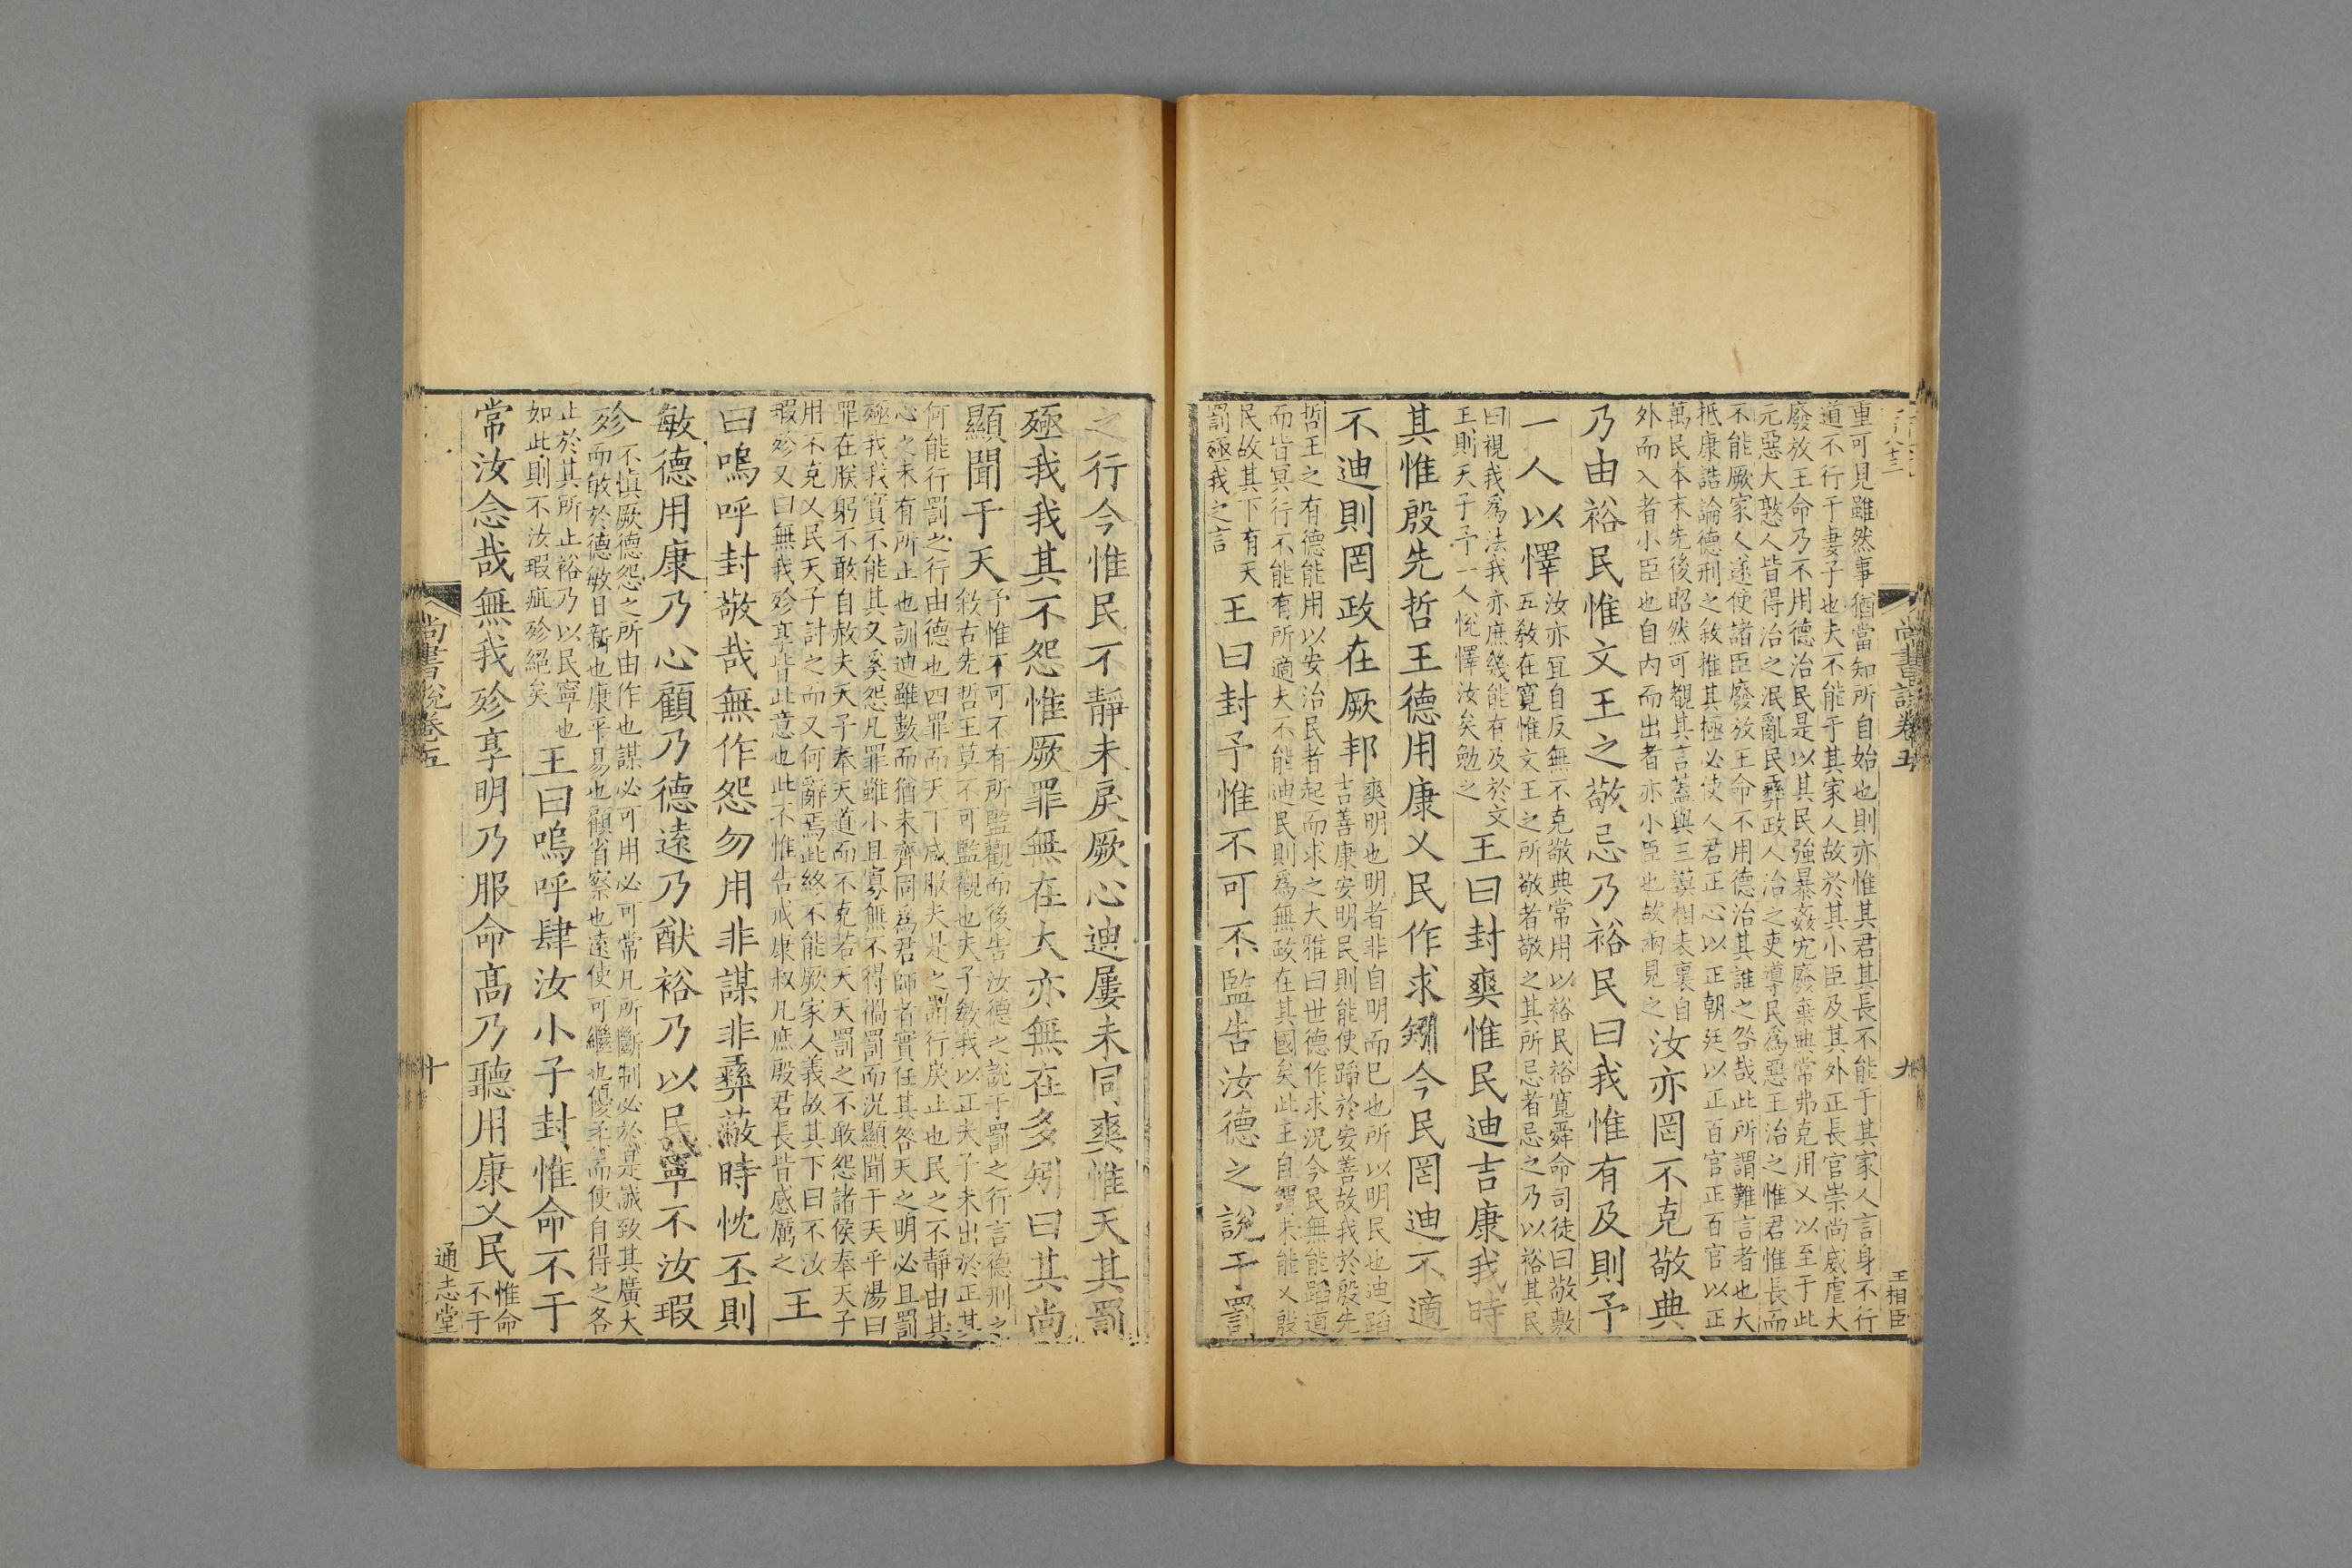 重可見雖然事猶當知所自始也則亦惟其君其長不能于其家人言身不行
道不行于妻子也夫不能于其家人故於其小臣及其外正長官崇尚威虐大
廢放王命乃不用德治民是以其民強暴姦宄廢棄典常弗克用乂以至于此
元惡大憝人皆得治之泯亂民彝政人治之吏導民為惡王治之惟君惟長而
不能厥家人遂使諸臣廢放王命不用德治其誰之咎哉此所謂難言者也大
抵康誥論德刑之敘推其極必使人君正心以正朝廷以正百官正百官以正
萬民本末先後昭然可覩其言蓋與三謨相表裏自
外而入者小臣也自內而出者亦小臣也故兩見之
汝亦罔不克敬典
乃由裕民惟文王之敬忌乃裕民曰我惟有及則予
一人以懌
汝亦宜自反無不克敬典常用以裕民裕寬舜命司徒曰敬敷
五敎在寬惟文王之所敬者敬之其所忌者忌之乃以裕其民
曰視我為法我亦庶幾能有及於文
王則天子予一人悅懌汝矣勉之
王曰封爽惟民迪吉康我時
其惟殷先哲王德用康乂民作求矧今民罔迪不適
不迪則罔政在厥邦
爽明也明者非自明而已也所以明民也迪蹈
吉善康安明民則能使蹈於安善故我於殷先
哲王之有德能用以安治民者起而求之大雅曰世德作求況今民無能蹈道
而皆冥行不能有所適夫不能迪民則為無政在其國矣此王自謂未能乂殷
民故其下有天
罰殛我之言
王曰封予惟不可不監告汝德之說于罰
尚書說卷五
九
王相臣
之行今惟民不靜未戾厥心迪屢未同爽惟天其罰
殛我我其不怨惟厥罪無在大亦無在多矧曰其尚
顯聞于天
予惟不可不有所監觀而後告汝德之說于罰之行言德刑之
敘古先哲王莫不可監觀也夫子敎我以正夫子未出於正其
何能行罰之行由德也四罪而天下咸服夫是之謂行戾止也民之不靜由其
心之未有所止也訓迪雖數而猶未齊同為君師者實任其咎天之明必且罰
殛我我實不能其又奚怨凡罪雖小且寡無不得禍罰而況顯聞于天乎湯曰
罪在朕躬不敢自赦夫天子奉天道而不克若天天罰之不敢怨諸侯奉天子
用不克乂民天子討之而又何辭焉此終不能厥家人義故其下曰不汝
瑕殄又曰無我殄享皆此意也此不惟告戒康叔凡庶殷君長皆感厲之
王
曰嗚呼封敬哉無作怨勿用非謀非彝蔽時忱丕則
敏德用康乃心顧乃德遠乃猷裕乃以民寧不汝瑕
殄
不愼厥德怨之所由作也謀必可用必可常凡所斷制必於是誠致其廣大
而敏於德敏日新也康平易也顧省察也遠使可繼也優柔而使自得之各
止於其所止裕乃以民寧也
如此則不汝瑕疵殄絕矣
王曰嗚呼肆汝小子封惟命不于
常汝念哉無我殄享明乃服命高乃聽用康乂民
惟命
不于
尚書說卷五
十
通志堂